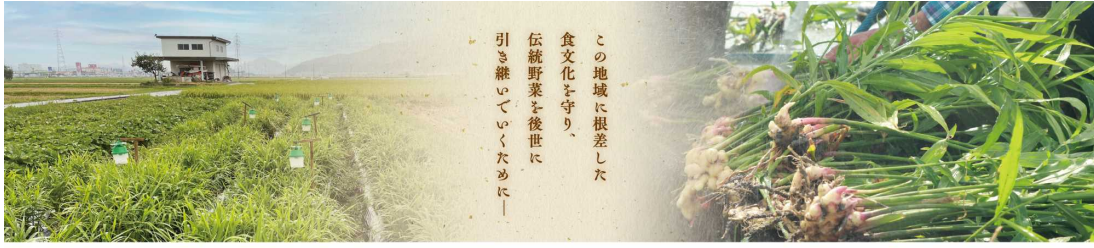 この地域に根差した
食文化を守り、
伝統野菜を後世に
引き継いでいくために―